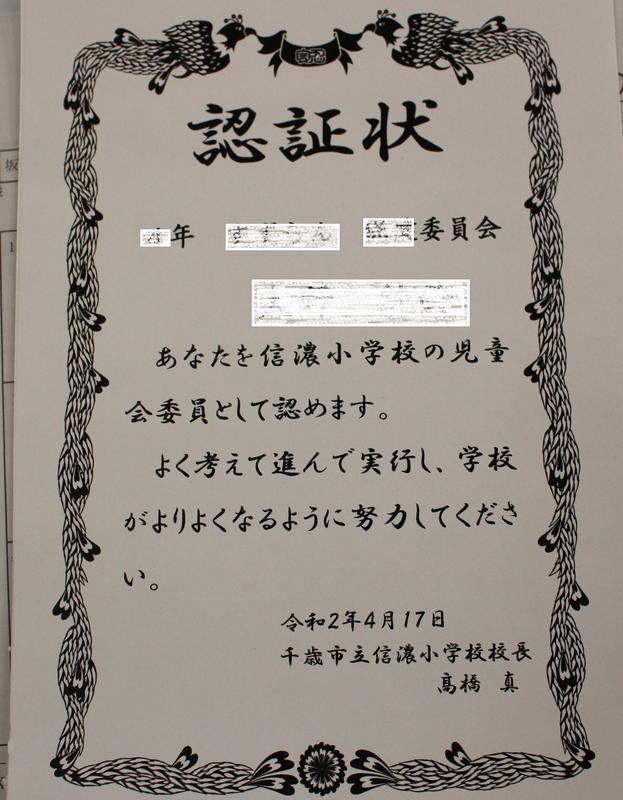 認証状
年
委員会
あなたを信濃小学校の児童
会委員として認めます。
よく考えて進んで実行し、学校
がよりよくなるように努力してくださ
い。
令和2年4月17日
千歳市立信濃小学校校長
髙橋 真